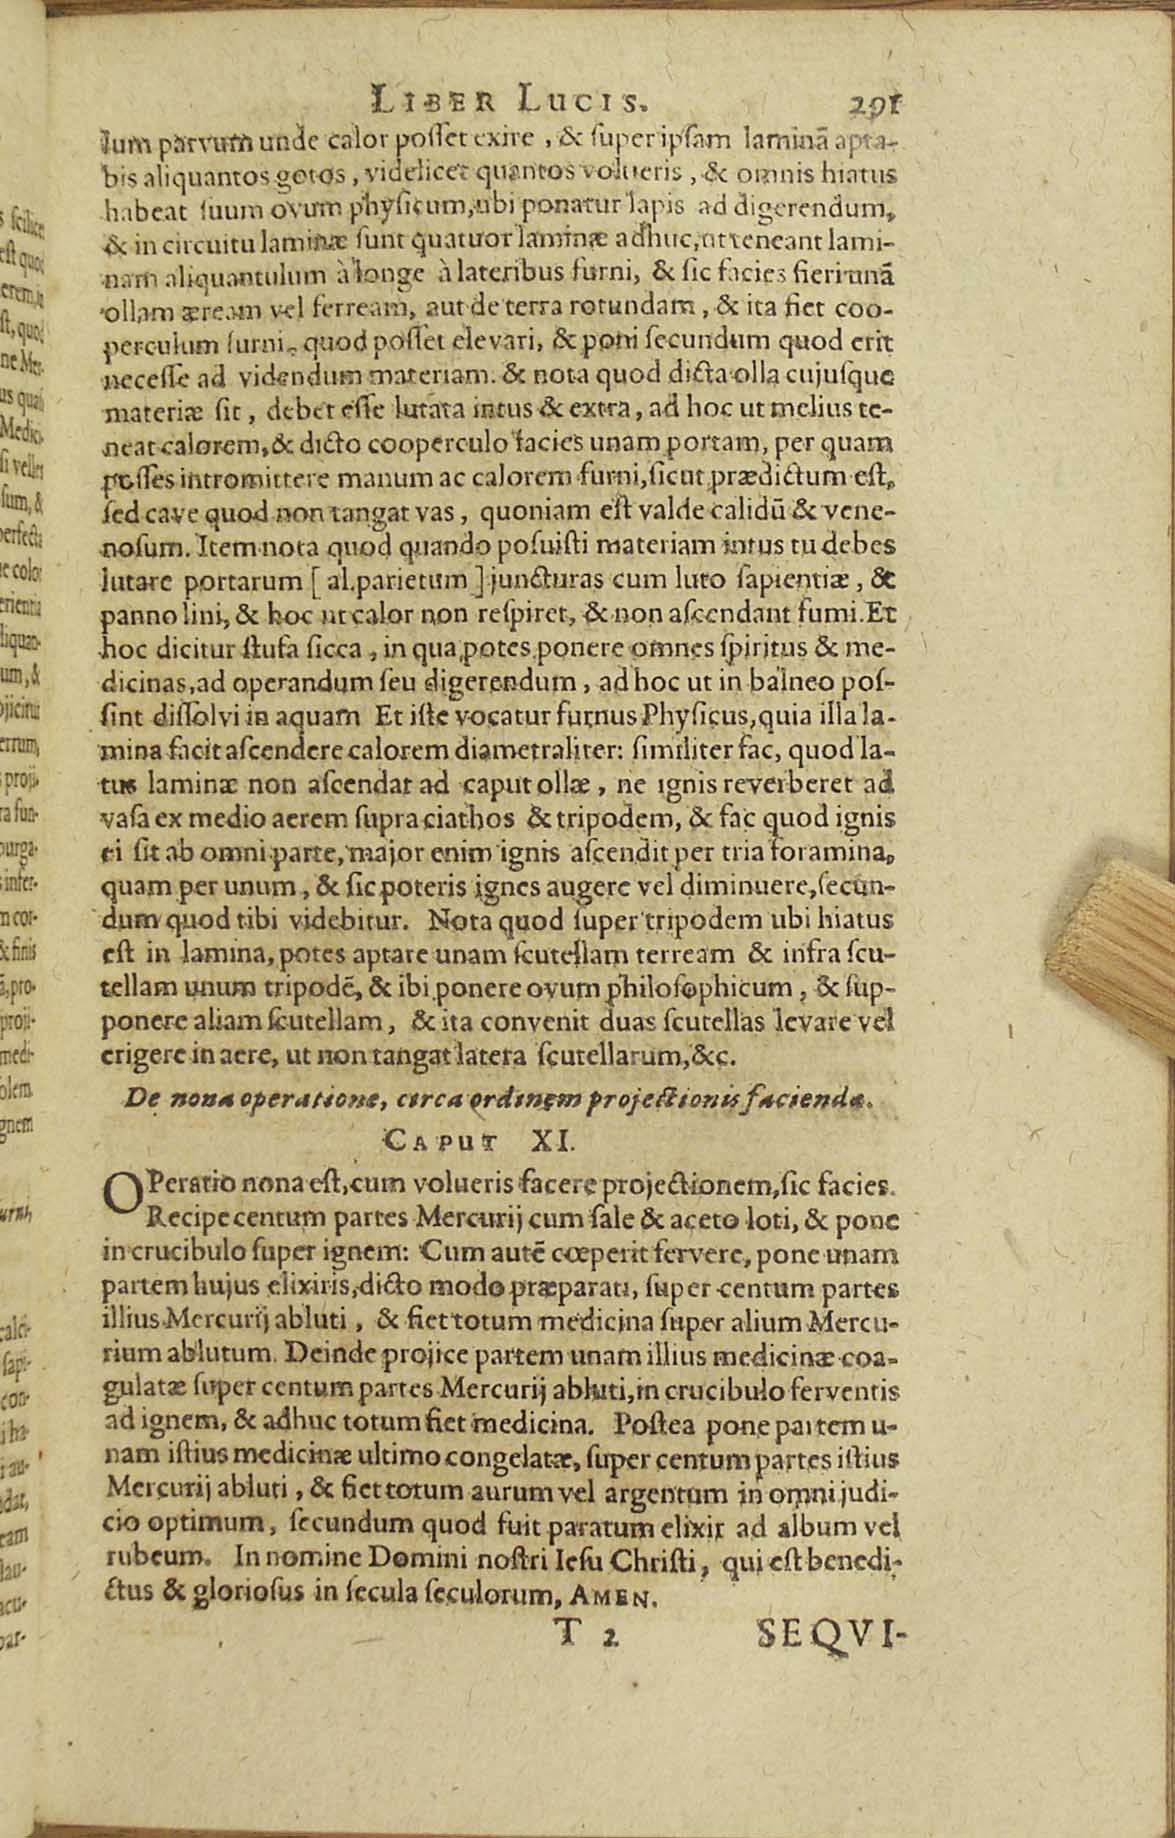 LIBER LUCIS. 291
lum parvum unde calor posset exire, & super ipsam laminā apta-
bis aliquantos gotos, videlicet quantos volueris, & omnis hiatus
habeat suum ovum physicum, ubi ponatur lapis ad digerendum,
& in circuitu laminæ sunt quatuor laminæ adhuc, ut teneant lami-
nam aliquantulum à longe à lateribus furni, & sic facies fieri unā
ollam æream vel ferream, aut de terra rotundam, & ita fiet coo-
perculum furni, quod posset elevari, & poni secundum quod erit
necesse ad videndum materiam. & nota quod dicta olla cujusque
materiæ sit, debet esse lutata intus & extra, ad hoc ut melius te-
neat calorem, & dicto cooperculo facies unam portam, per quam
posses intromittere manum ac calorem furni, sicut prædictum est,
sed cave quod non tangat vas, quoniam est valde calidū & vene-
nosum. Item nota quod quando posuisti materiam intus tu debes
lutare portarum [ al. parietum ] juncturas cum luto sapientiæ, &
panno lini, & hoc ut calor non respiret, & non ascendant fumi. Et
hoc dicitur stufa sicca, in qua potes ponere omnes spiritus & me-
dicinas, ad operandum seu digerendum, ad hoc ut in balneo pos-
sint dissolvi in aquam Et iste vocatur furnus Physicus, quia illa la-
mina facit ascendere calorem diametraliter: similiter fac, quod la-
tus laminæ non ascendat ad caput ollæ, ne ignis reverberet ad
vasa ex medio aerem supra ciathos & tripodem, & fac quod ignis
ei sit ab omni parte, major enim ignis ascendit per tria foramina,
quam per unum, & sic poteris ignes augere vel diminuere, secun-
dum quod tibi videbitur. Nota quod super tripodem ubi hiatus
est in lamina, potes aptare unam scutellam terream & infra scu-
tellam unum tripodē, & ibi ponere ovum philosophicum, & sup-
ponere aliam scutellam, & ita convenit duas scutellas levare vel
erigere in aere, ut non tangat latera scutellarum, &c.
De nona operatione, circa ordinem projectionis faciendæ.
CAPUT XI.
OPeratio nona est, cum volueris facere projectionem, sic facies.
Recipe centum partes Mercurij cum sale & aceto loti, & pone
in crucibulo super ignem: Cum autē cœperit fervere, pone unam
partem hujus elixiris, dicto modo præparati, super centum partes
illius Mercurij abluti, & fiet totum medicina super alium Mercu-
rium ablutum. Deinde projice partem unam illius medicinæ coa-
gulatæ super centum partes Mercurij abluti, in crucibulo ferventis
ad ignem, & adhuc totum fiet medicina. Postea pone partem u-
nam istius medicinæ ultimo congelatæ, super centum partes istius
Mercurij abluti, & fiet totum aurum vel argentum in omni judi-
cio optimum, secundum quod fuit paratum elixir ad album vel
rubeum. In nomine Domini nostri Iesu Christi, qui est benedi-
ctus & gloriosus in secula seculorum, AMEN.
T 2 SEQVI-